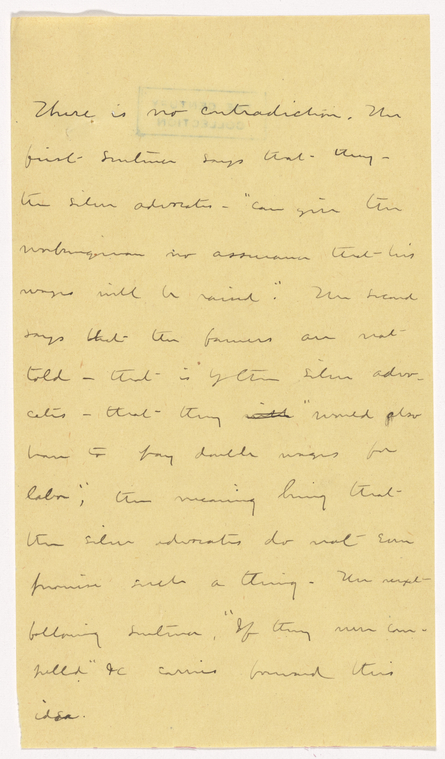 There is no contradiction. The
first sentence says that they –
the silver advocates – "can give the
workingman no assurance that his
wages will be raised". The second
says that the farmers are not
told – that is by the silver advo-
cates – that they will "would also
have to pay double wages for
labor"; the meaning being that
the silver advocates do not even
promise such a thing. The next
following sentence, "If they were com-
pelled" &c carries forward this
idea.